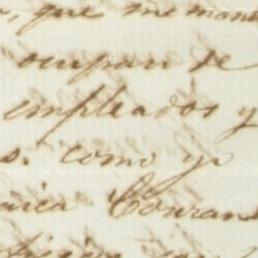 que me mane
ocupan se
empleados y
s. como yo
nica Couran